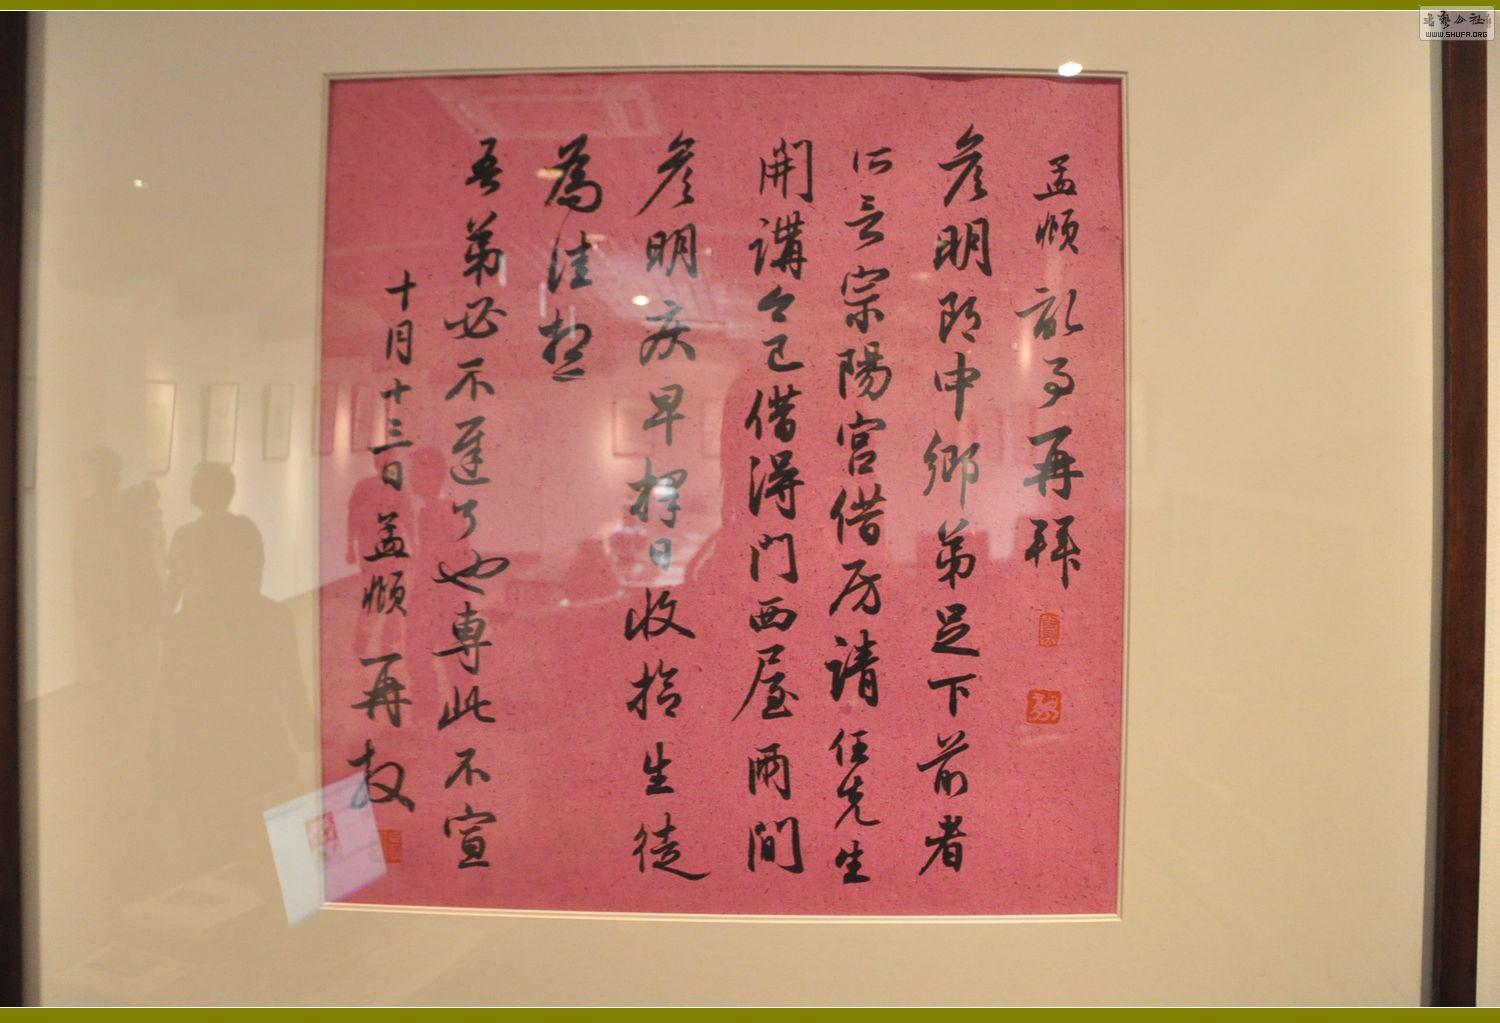 孟頫記事再拜
彦明郎中鄉弟足下前者
所言宗陽宮借房請任先生
開講今已借得門西屋兩間
彦明疾早擇日收拾生徒
為佳想
吾弟必不遲了也專此不宣
十月十三日孟頫再拜
WWW.SHUFA.ORG